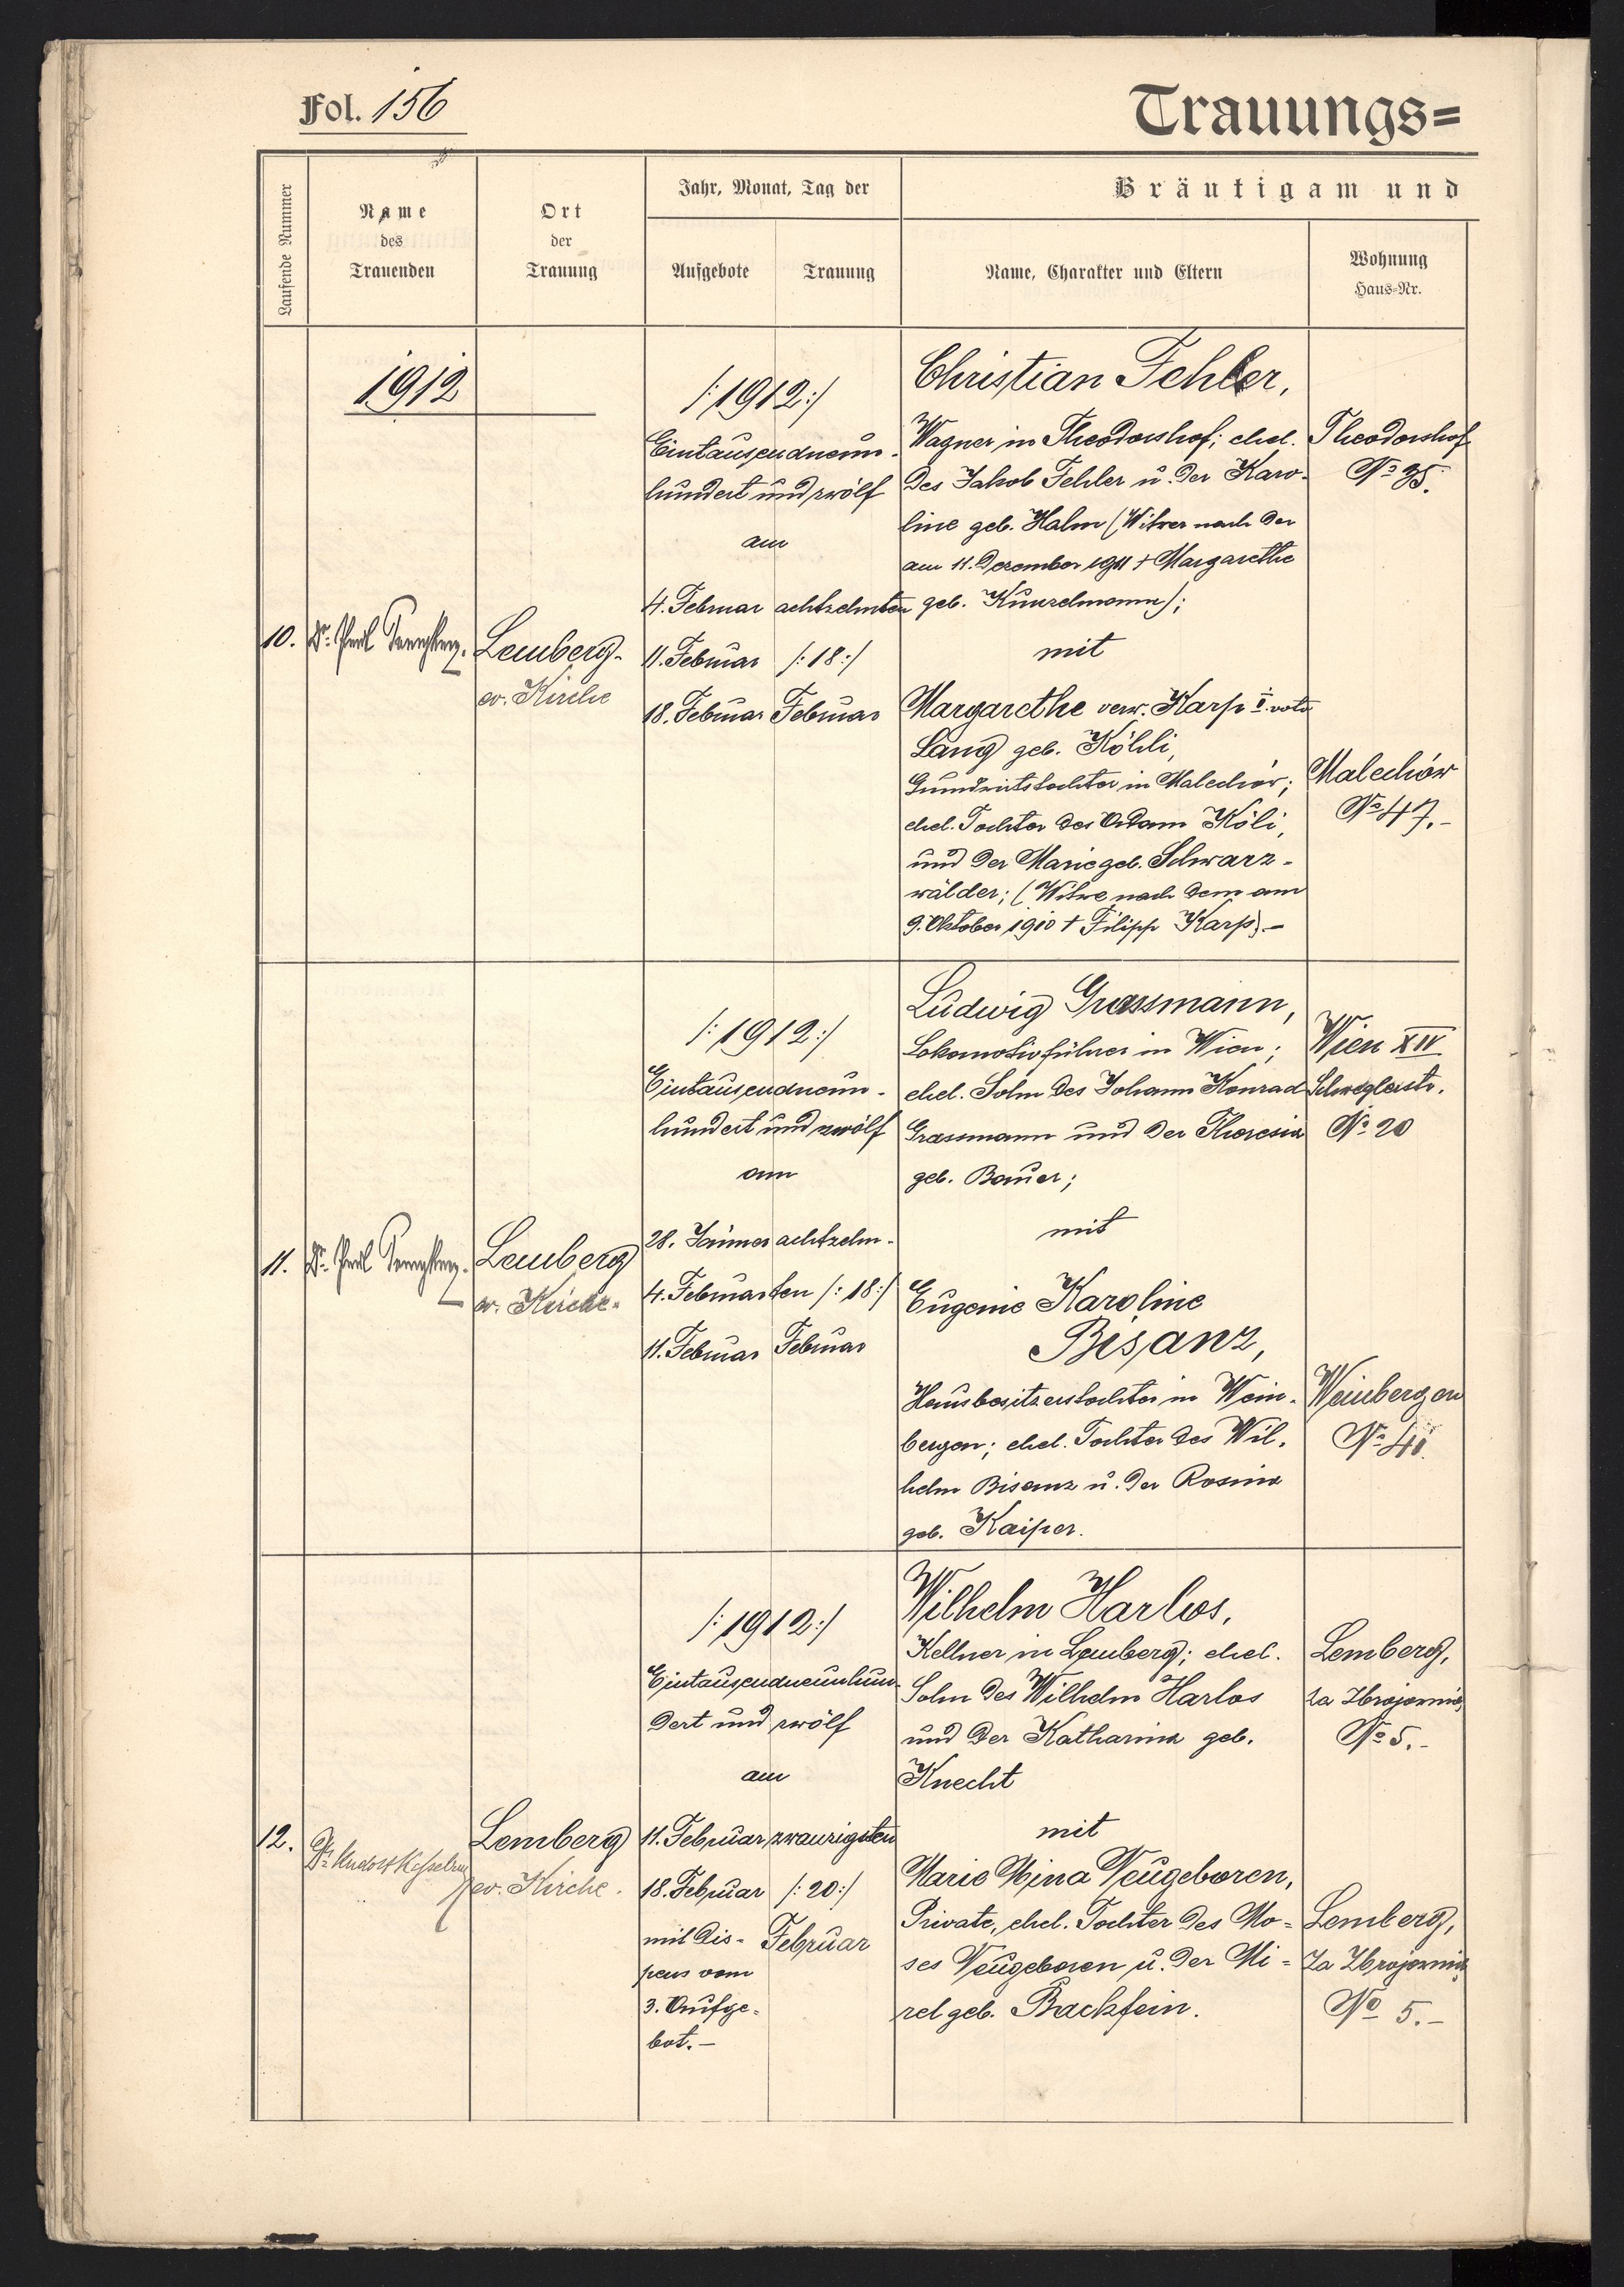 Fol. 156
Trauungs=
Laufende Nummer
Name
des
Trauenden
Ort
der
Trauung
Jahr, Monat, Tag der
Aufgebote
Trauung
Bräutigam und
Name, Charakter und Eltern
Wohnung
Haus=Nr.
1912
10.
Dr. Paul
Lemberg.
ev. Kirche
/:1912:/
Eintausendneun-
hundert und zwölf
am
4. Februar achtzehnten
11. Februar /:18:/
18. Februar Februar
Christian Fehler,
Wagner in Theodorshof; ehel.
des Jakob Fehler u. der Karo-
line geb. Halm (Witwer nach der
am 11. Dezember 1911 + Margarethe
geb. Kunzelmann);
mit
Margarethe verw. Karp II. voto
Lang geb. Köhli,
Grundwirtstochter in Malechów;
ehel. Tochter des Adam Köli,
und der Marie geb. Schwarz-
wälder; (Witwe nach dem am
9. Oktober 1910 + Filipp Karp).-
Theodorshof
No 35.
Malechów
No 47.-
11.
Dr. Paul
Lemberg
ev. Kirche.
/:1912:/
Eintausendneun-
hundert und zwölf
am
28. Jänner achtzehn-
4. Februar ten /:18:/
11. Februar Februar
Ludwig Grassmann,
Lokomotivführer in Wien;
ehel. Sohn des Johann Konrad
Grassmann und der Theresia
geb. Bauer;
mit
Eugenie Karoline
Bisanz,
Hausbesitzerstochter in Wein-
bergen; ehel. Tochter des Wil-
helm Bisanz u. der Rosina
geb. Kaiper.
Wien XIV
Schweglerstr.
No 20
Weinbergen
No 40.
12.
Dr. Rudolf Kesselring
Lemberg
ev. Kirche.
/:1912:/
Eintausendneunhun-
dert und zwölf
am
11. Februar zwanzigsten
18. Februar /:20:/
mit Dis- Februar
pens vom
3. Aufge-
bot.-
Wilhelm Harlos,
Kellner in Lemberg; ehel.
Sohn des Wilhelm Harlos
und der Katharina geb.
Knecht
mit
Marie Mina Neugeboren,
Private, ehel. Tochter des Mo-
ses Neugeboren u. der Mi-
rel geb. Backfein.
Lemberg,
Za Zbrojownią
No 5.-
Lemberg,
Za Zbrojownią
No 5.-